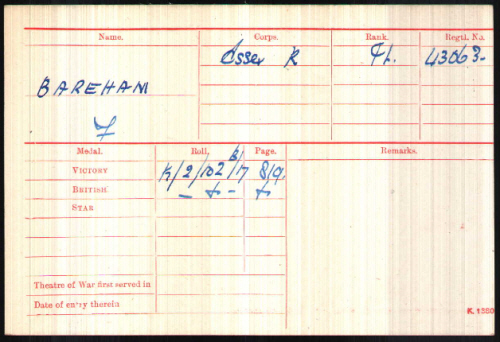 Name. Corps. Rank. Regtl. No.
BAREHAM Essex R Pt. 43063.
Medal. Roll. Page. Remarks.
VICTORY K/2/102 B/17 819.
BRITISH — do — do
STAR
Theatre of War first served in
Date of entry therein
K. 1380